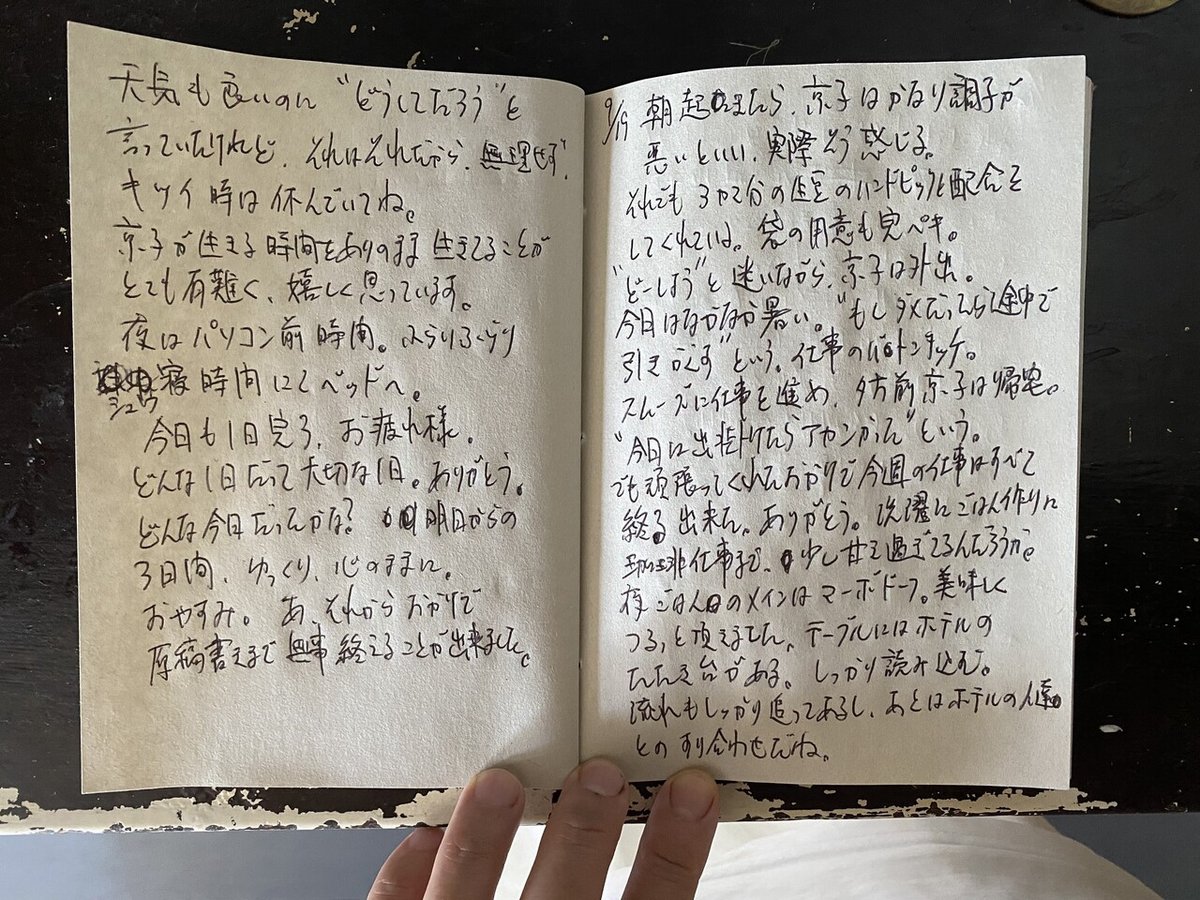 天気も良いのに "どうしてだろう"と
言っていたけれど、それはそれだから、無理せず、
キツイ時は休んでいてね。
京子が生きる時間をありのまま生きてることが
とても有難く、嬉しく思っています。
夜はパソコン前時間。ふらりふらり
シュウ寝時間にてベッドへ。
今日も1日完了、お疲れ様。
どんな1日だって大切な1日。ありがとう。
どんな今日だったかな? 明日からの
3日間、ゆっくり、心のままに。
おやすみ。あ、それからおかげで
原稿書きまで無事終えることが出来ました。
9/19 朝起きたら、京子はかなり調子が
悪いといい、実際そう感じる。
それでも 3カマ分の生豆のハンドピックと配合を
してくれている。袋の用意も完ペキ。
"どーしよう"と迷いながら、京子は外出。
今日はなかなか暑い。"もしダメだったら途中で
引きかえす"という。仕事のバトンタッチ。
スムーズに仕事を進め、夕方前京子は帰宅。
"今日は出掛けたらアカンかった"という。
でも頑張ってくれたおかげで今週の仕事はすべて
終る出来た。ありがとう。洗濯にごはん作りに
珈琲仕事まで、少し甘え過ぎてるんだろうか。
夜ごはんのメインはマーボドーフ。美味しく
つるっと頂きました。テーブルにはホテルの
たたき台がある。しっかり読み込む。
流れもしっかり追ってあるし、あとはホテルの人達
とのすり合わせだね。